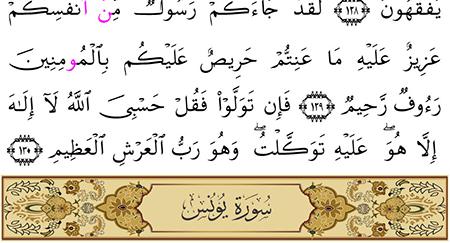 يَفْقَهُونَ ١٢٨ لَقَدْ جَآءَكُمْ رَسُولٌ مِّنَ اَنفُسِكُمْ
عَزِيزٌ عَلَيْهِ مَا عَنِتُّمْ حَرِيصٌ عَلَيْكُم بِالْمُومِنِينَ
رَءُوفٌ رَّحِيمٌ ١٢٩ فَإِن تَوَلَّوْاْ فَقُلْ حَسْبِىَ اَللَّهُ لَآ إِلَٰهَ
إِلَّا هُوَۖ عَلَيْهِ تَوَكَّلْتُۖ وَهُوَ رَبُّ الْعَرْشِ الْعَظِيمِ ١٣٠
سُورَةُ يُونُسَ